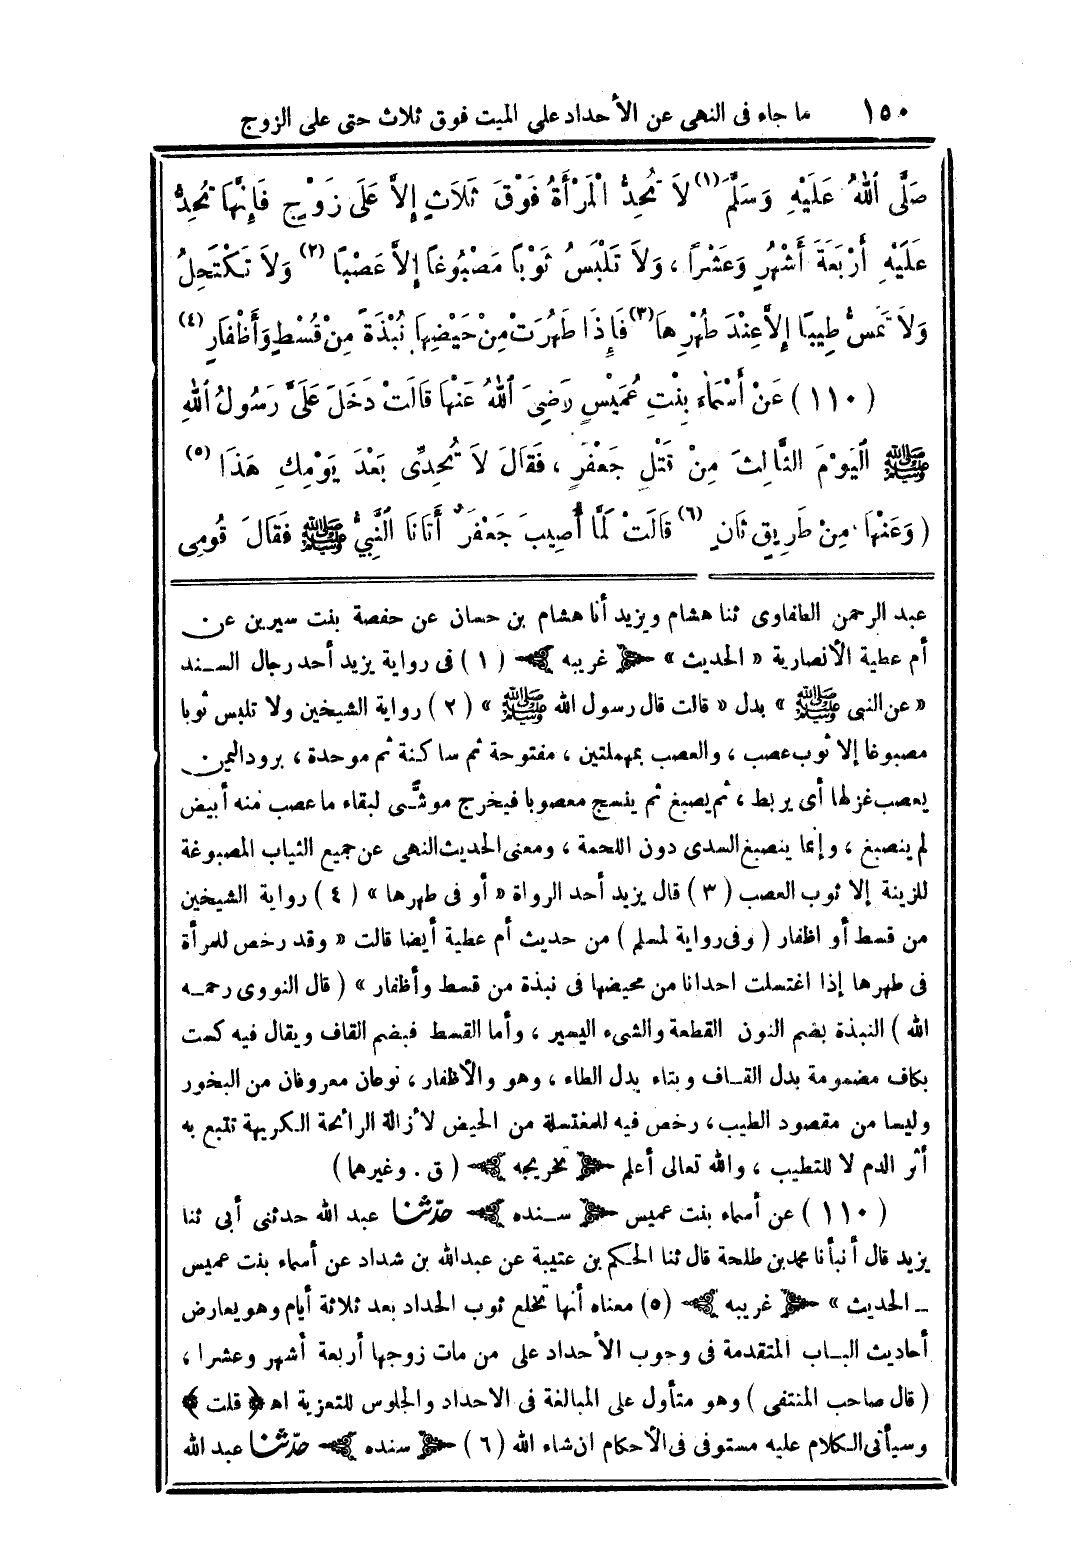 ١٥٠ ما جاء فى النهى عن الأحداد على الميت فوق ثلاث حتى على الزوج
صَلَّى اللهُ عَلَيْهِ وَسَلَّمَ (١) لاَ تُحِدُّ الْمَرْأَةُ فَوْقَ ثَلاَثٍ إِلاَّ عَلَى زَوْجٍ فَإِنَّهَا تُحِدُّ
عَلَيْهِ أَرْبَعَةَ أَشْهُرٍ وَعَشْرًا ، وَلاَ تَلْبَسُ ثَوْبًا مَصْبُوغًا إِلاَّ عَصْبًا (٢) وَلاَ تَكْتَحِلُ
وَلاَ تَمَسُّ طِيبًا إِلاَّ عِنْدَ طُهْرِهَا (٣) فَإِذَا طَهُرَتْ مِنْ حَيْضِهَا نُبْذَةً مِنْ قُسْطٍ وَأَظْفَارٍ (٤)
( ١١٠ ) عَنْ أَسْمَاءَ بِنْتِ عُمَيْسٍ رَضِىَ اللهُ عَنْهَا قَالَتْ دَخَلَ عَلَىَّ رَسُولُ اللهِ
ﷺ الْيَوْمَ الثَّالِثَ مِنْ قَتْلِ جَعْفَرٍ ، فَقَالَ لاَ تُحِدِّى بَعْدَ يَوْمِكِ هَذَا (٥)
( وَعَنْهَا مِنْ طَرِيقٍ ثَانٍ (٦) قَالَتْ لَمَّا أُصِيبَ جَعْفَرٌ أَتَانَا النَّبِيُّ ﷺ فَقَالَ قُومِى
عبد الرحمن الطفاوى ثنا هشام ويزيد أنا هشام بن حسان عن حفصة بنت سيرين عن
أم عطية الأنصارية « الحديث » غريبه ( ١ ) فى رواية يزيد أحد رجال السند
« عن النبى ﷺ » بدل « قالت قال رسول الله ﷺ » ( ٢ ) رواية الشيخين ولا تلبس ثوبا
مصبوغا إلا ثوب عصب ، والعصب بمهملتين ، مفتوحة ثم ساكنة ثم موحدة ، برود اليمن
يعصب غزلها أى يربط ، ثم يصبغ ثم ينسج معصوبا فيخرج موشَّى لبقاء ما عصب منه أبيض
لم ينصبغ ، وإنما ينصبغ السدى دون اللحمة ، ومعنى الحديث النهى عن جميع الثياب المصبوغة
للزينة إلا ثوب العصب ( ٣ ) قال يزيد أحد الرواة « أو فى طهرها » ( ٤ ) رواية الشيخين
من قسط أو اظفار ( وفى رواية لمسلم ) من حديث أم عطية أيضا قالت « وقد رخص للمرأة
فى طهرها إذا اغتسلت احدانا من محيضها فى نبذة من قسط وأظفار » ( قال النووى رحمه
الله ) النبذة بضم النون القطعة والشىء اليسير ، وأما القسط فبضم القاف ويقال فيه كست
بكاف مضمومة بدل القاف وبتاء بدل الطاء ، وهو والأظفار ، نوعان معروفان من البخور
وليسا من مقصود الطيب ، رخص فيه للمغتسلة من الحيض لأزالة الرائحة الكريهة تتبع به
أثر الدم لا للتطيب ، والله تعالى أعلم تخريجه ( ق . وغيرهما )
( ١١٠ ) عن أسماء بنت عميس سنده حدّثنا عبد الله حدثنى أبى ثنا
يزيد قال أنبأنا محمد بن طلحة قال ثنا الحكم بن عتيبة عن عبد الله بن شداد عن أسماء بنت عميس
ـ الحديث » غريبه (٥) معناه أنها تخلع ثوب الحداد بعد ثلاثة أيام وهو يعارض
أحاديث الباب المتقدمة فى وجوب الأحداد على من مات زوجها أربعة أشهر وعشرا ،
( قال صاحب المنتقى ) وهو متأول على المبالغة فى الاحداد والجلوس للتعزية اهـ ﴿ قلت ﴾
وسيأتى الكلام عليه مستوفى فى الأحكام ان شاء الله ( ٦ ) سنده حدّثنا عبد الله